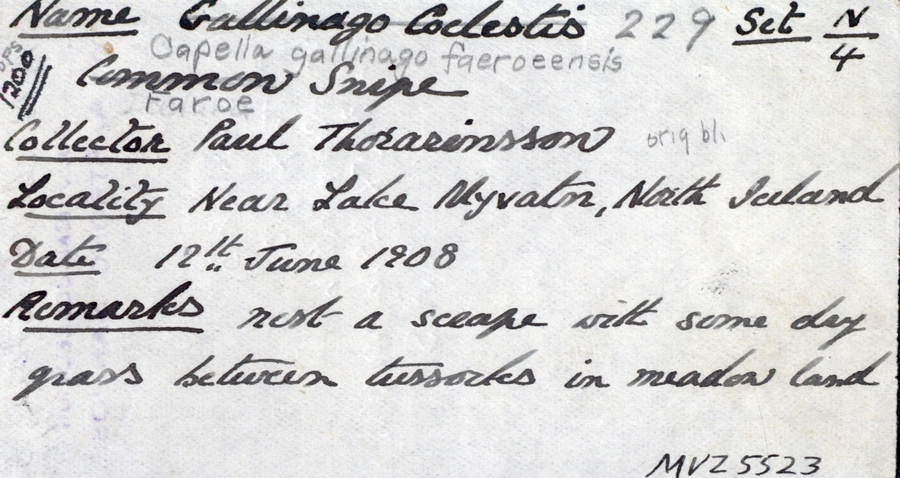 Name Gallinago Coelestis 229 Set N/4
Capella gallinago faeroeensis
1200
Common Snipe
Faroe
Collector Paul Thorarinsson orig bl.
Locality Near Lake Myvatn, North Iceland
Date 12th June 1908
Remarks nest a scrape with some dry
grass between tussocks in meadow land
MVZ 5523